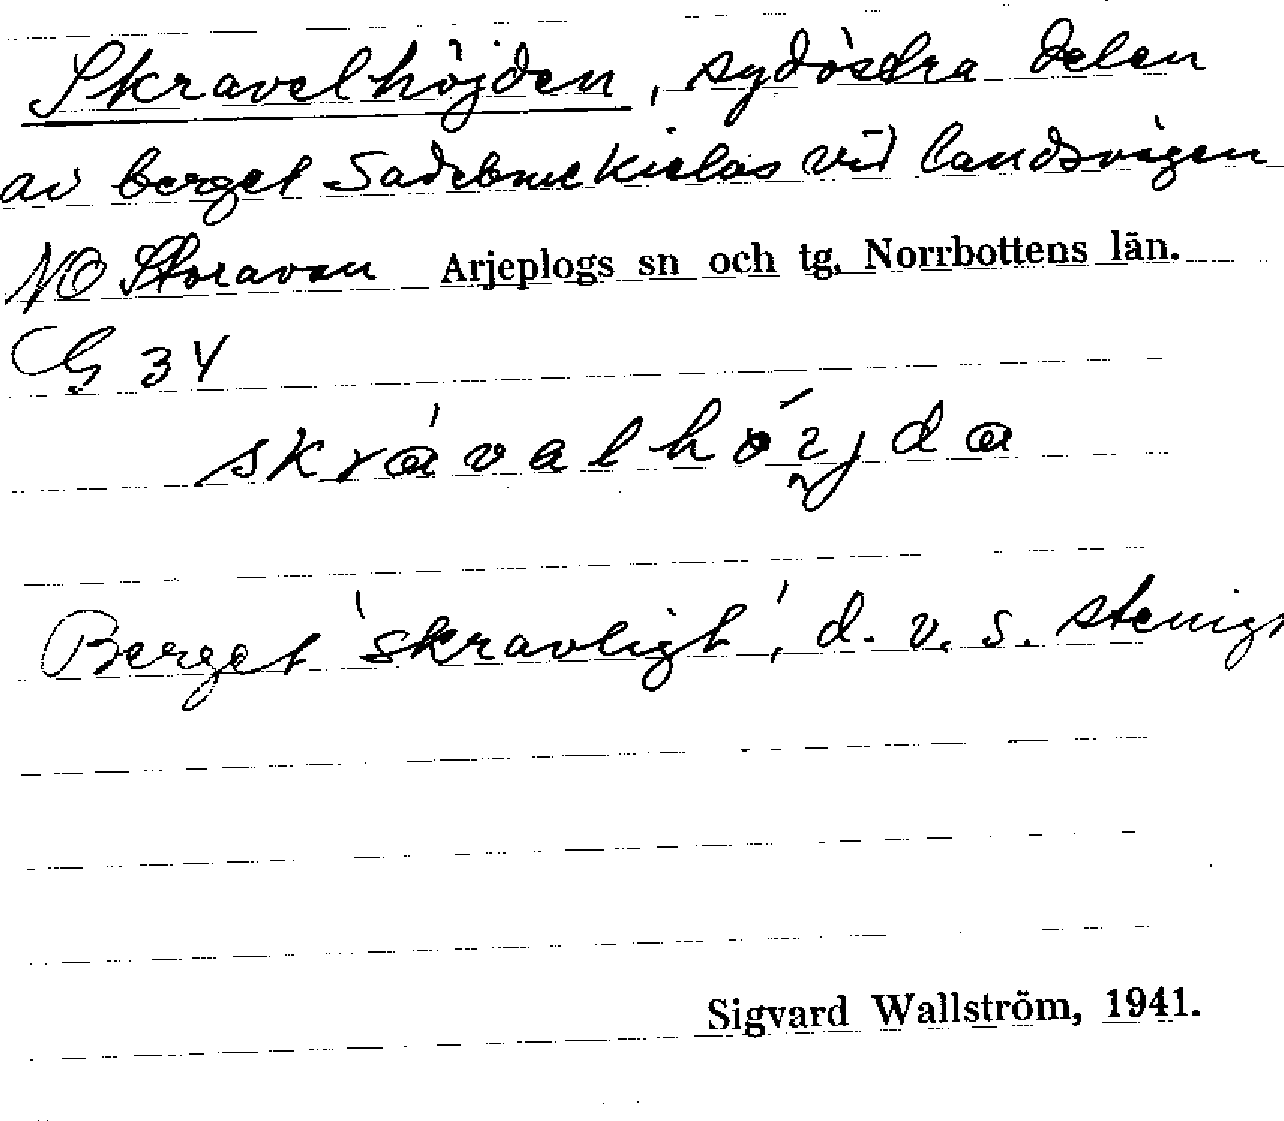 Skravelhöjden, sydöstra delen
av berget vid landsvägen
NO Storavan Arjeplogs sn och tg, Norrbottens län.
G 34
skrávalhöɀjda
Berget 'skravligt', d. v. s. stenigt
Sigvard Wallström, 1941.